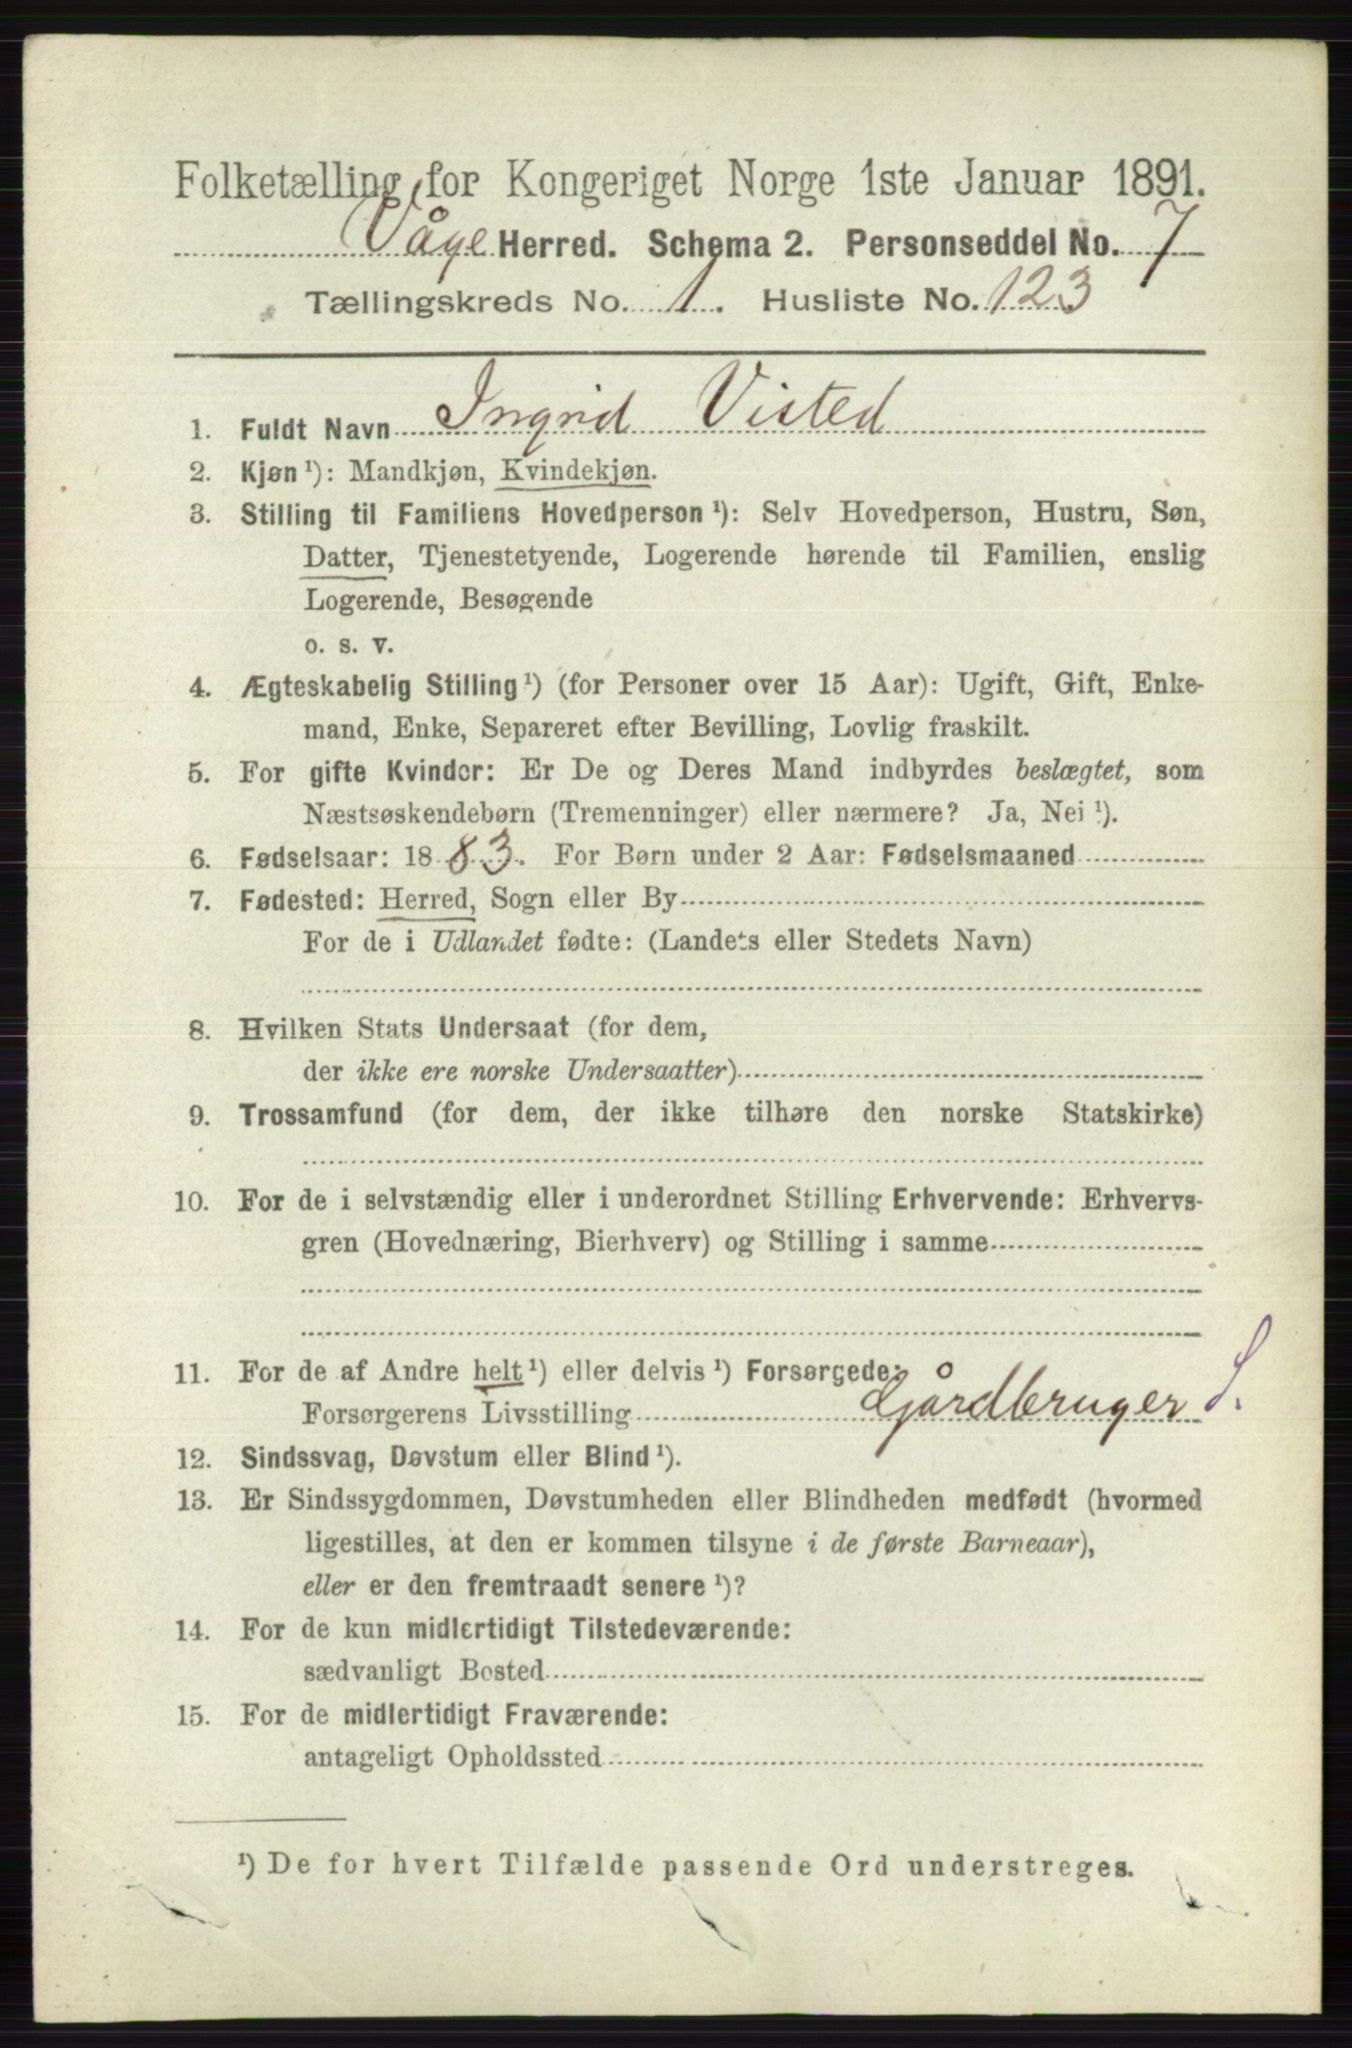 Folketælling for Kongeriget Norge 1ste Januar 1891.
Våge Herred. Schema 2. Personseddel No. 7
Tællingskreds No. 1. Husliste No. 123
1. Fuldt Navn Ingrid Visted
2. Kjøn ¹): Mandkjøn, Kvindekjøn.
3. Stilling til Familiens Hovedperson ¹): Selv Hovedperson, Hustru, Søn,
Datter, Tjenestetyende, Logerende hørende til Familien, enslig
Logerende, Besøgende
o. s. v.
4. Ægteskabelig Stilling ¹) (for Personer over 15 Aar): Ugift, Gift, Enke-
mand, Enke, Separeret efter Bevilling, Lovlig fraskilt.
5. For gifte Kvinder: Er De og Deres Mand indbyrdes beslægtet, som
Næstsøskendebørn (Tremenninger) eller nærmere? Ja, Nei ¹).
6. Fødselsaar: 1883. For Børn under 2 Aar: Fødselsmaaned
7. Fødested: Herred, Sogn eller By
For de i Udlandet fødte: (Landets eller Stedets Navn)
8. Hvilken Stats Undersaat (for dem,
der ikke ere norske Undersaatter)
9. Trossamfund (for dem, der ikke tilhøre den norske Statskirke)
10. For de i selvstændig eller i underordnet Stilling Erhvervende: Erhvervs-
gren (Hovednæring, Bierhverv) og Stilling i samme
11. For de af Andre helt ¹) eller delvis ¹) Forsørgede:
Forsørgerens Livsstilling Gårdbruger S.
12. Sindssvag, Døvstum eller Blind ¹).
13. Er Sindssygdommen, Døvstumheden eller Blindheden medfødt (hvormed
ligestilles, at den er kommen tilsyne i de første Barneaar),
eller er den fremtraadt senere ¹)?
14. For de kun midlertidigt Tilstedeværende:
sædvanligt Bosted
15. For de midlertidigt Fraværende:
antageligt Opholdssted
¹) De for hvert Tilfælde passende Ord understreges.